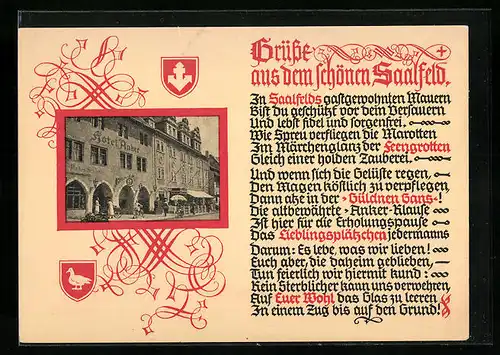 Grüße
aus dem schönen Saalfeld.
In Saalfelds gastgewohnten Mauern
Bist du geschützt vor dem Versauern
Und lebst fidel und sorgenfrei.
Wie Spreu verfliegen die Marotten
Im Märchenglanz der Feengrotten
Gleich einer holden Zauberei.
Und wenn sich die Gelüste regen,
Den Magen köstlich zu verpflegen,
Dann atze in der „Güldnen Gans“!
Die altbewährte „Anker-Klause“
Ist hier für die Erholungspause
Das Lieblingsplätzchen jedermanns
Darum: Es lebe, was wir lieben!
Euch aber, die daheim geblieben,
Tun feierlich wir hiermit kund:
Kein Sterblicher kann uns verwehren,
Auf Euer Wohl das Glas zu leeren
In einem Zug bis auf den Grund!
Hotel Anker